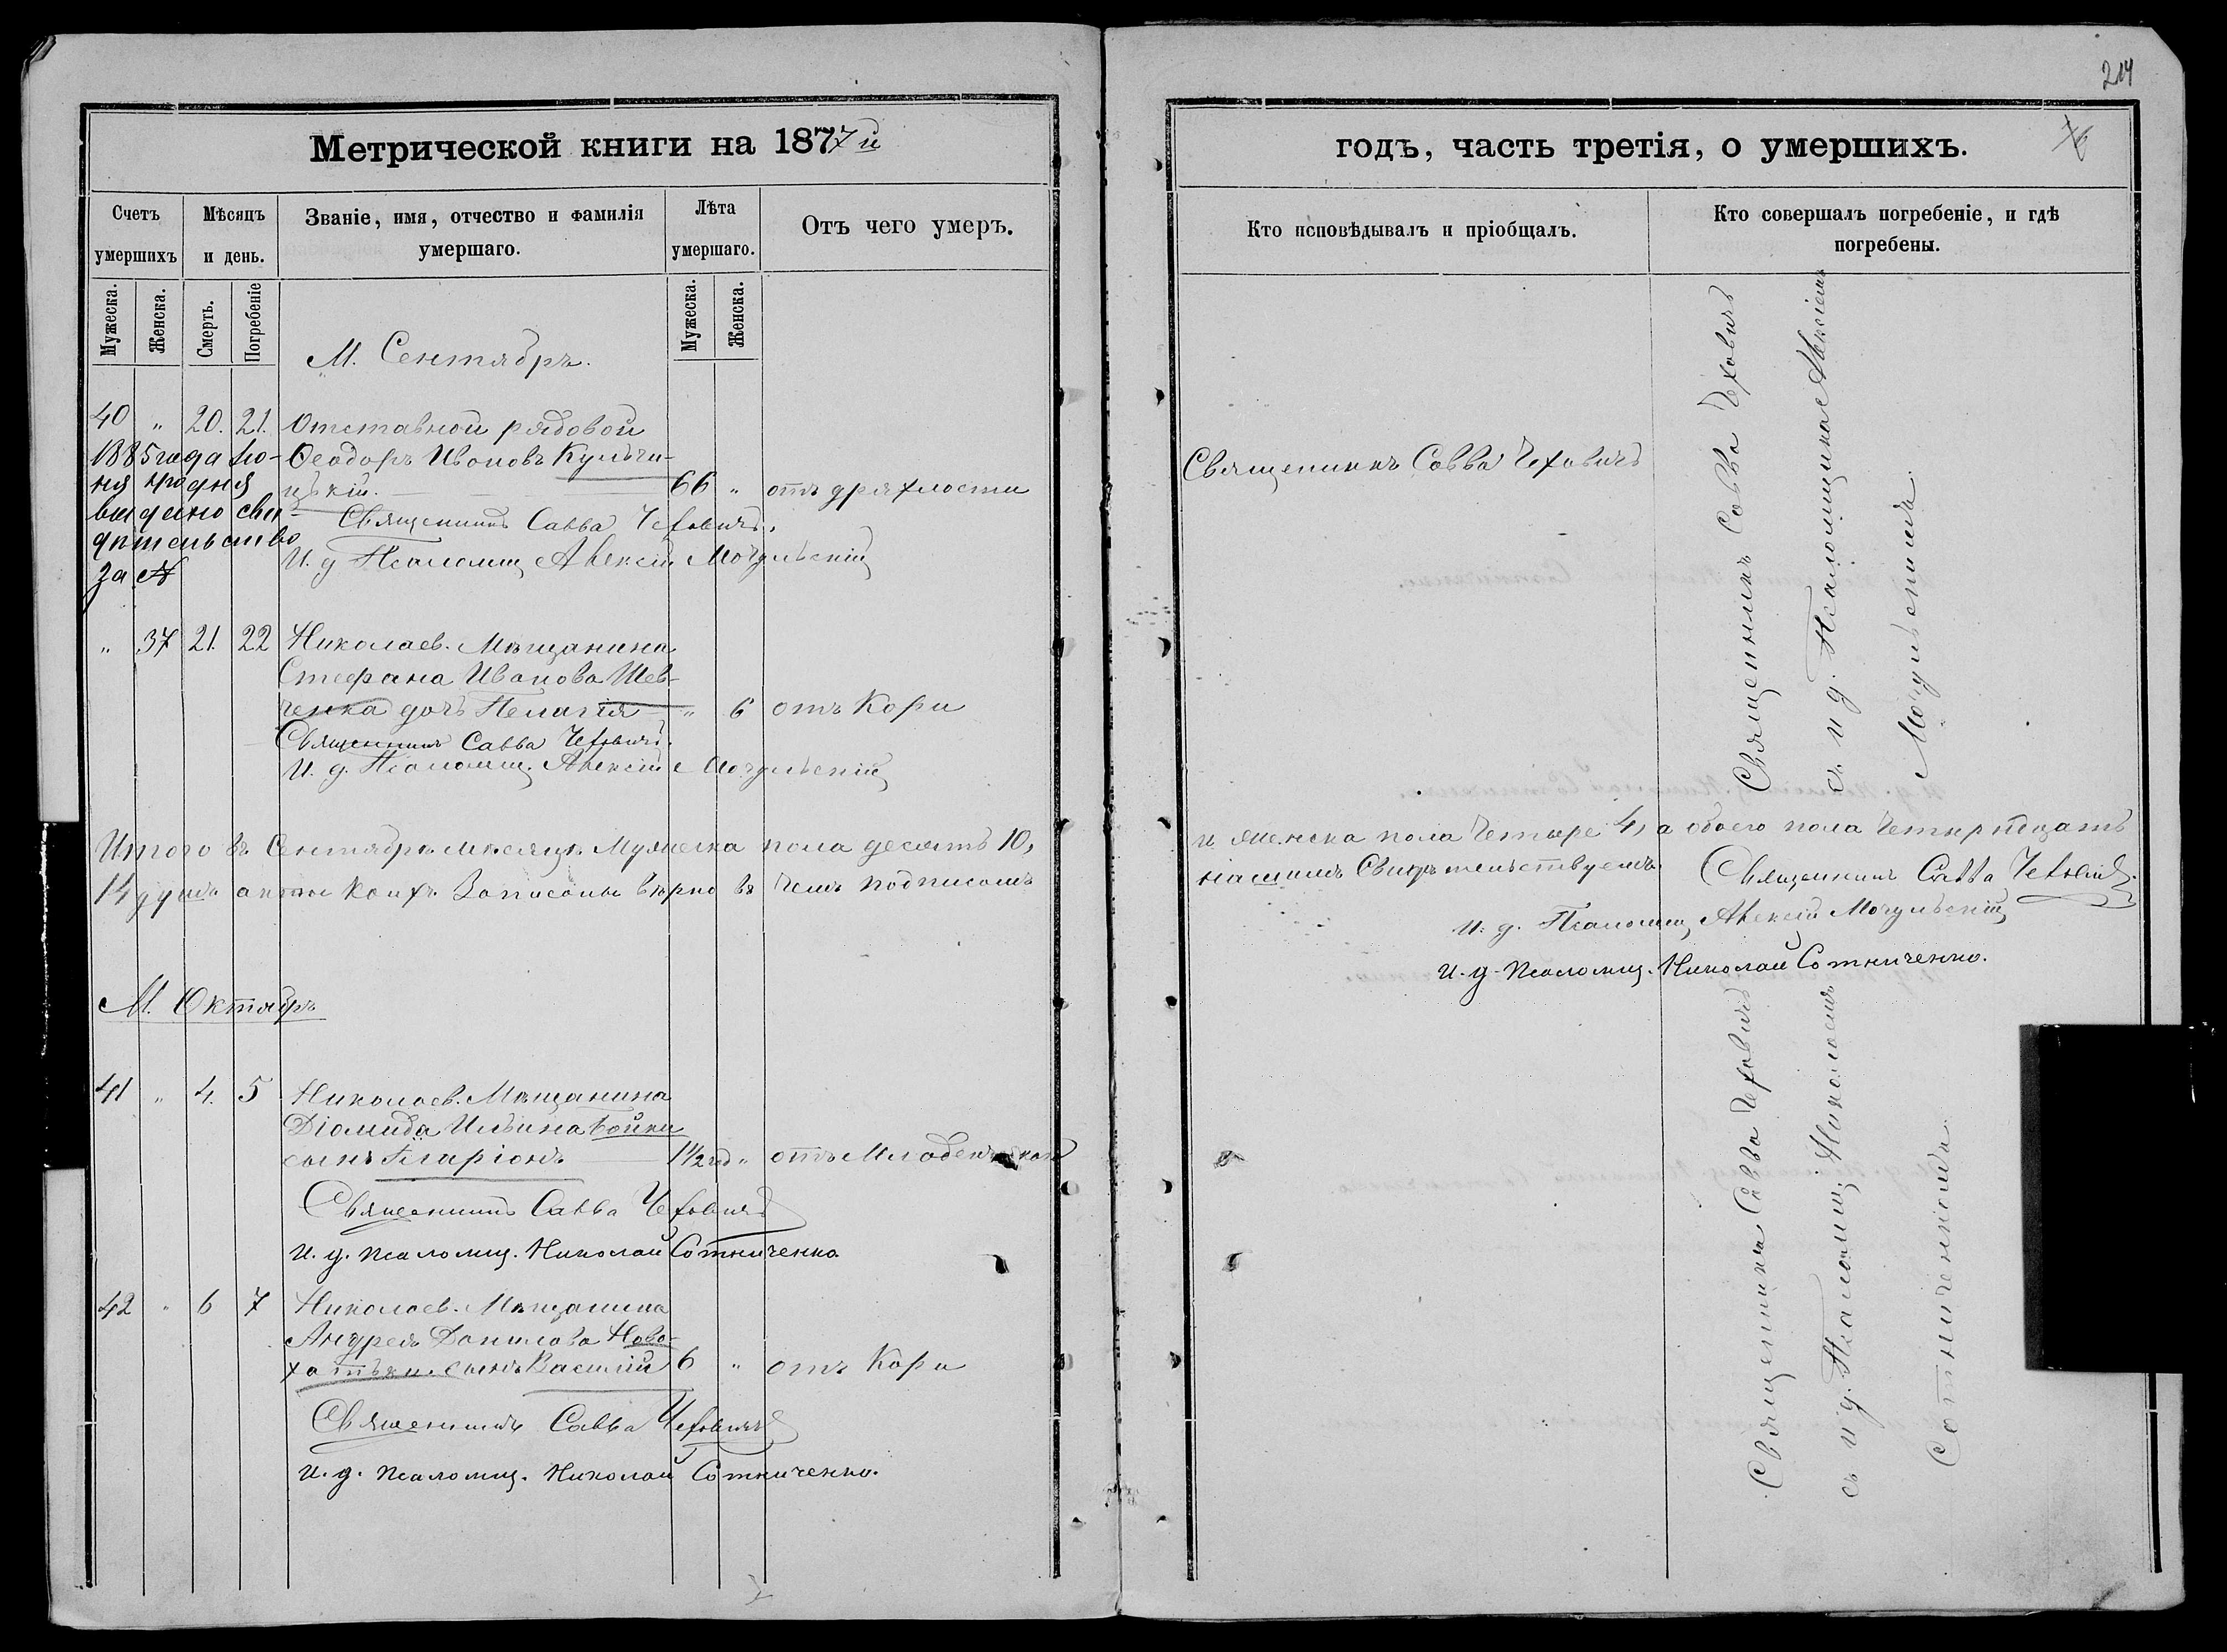 214
Метрической книги на 1877й
годъ, часть третія, о умершихъ.
Счетъ умершихъ
Мѣсяцъ и день.
Званіе, имя, отчество и фамилія умершаго.
Лѣта умершаго.
Отъ чего умеръ.
Кто исповѣдывалъ и пріобщалъ.
Кто совершалъ погребеніе, и гдѣ погребены.
Мужеска.
Женска.
Смерть.
Погребеніе
Мужеска.
Женска.
М. Сентябрь.
40 " 20. 21. Отставной рядовой
Ѳеодоръ Ивановъ Кульчи-
цькій. 66 " отъ дряхлости
Священникъ Савва Чеховичъ.
И. д. Псаломщ. Алексій Мочульскій
1885 года Iю-
ня 4го дня
выдано сви-
дѣтельство
за №
Священникъ Савва Чеховичъ
Священникъ Савва Чеховичъ
съ и. д. Псаломщика Алексіемъ
Мочульскимъ.
" 37 21. 22 Николаев. Мѣщанина
Стефана Иванова Шев-
ченка дочь Пелагія " 6 отъ Кори
Священникъ Савва Чеховичъ.
И. д. Псаломщ. Алексій Мочульскій
Итого въ Сентябрѣ мѣсяцѣ Мужеска пола десять 10,
и женска пола четыре 4, а обоего пола четырнадцать
14 душъ акты коихъ записаны вѣрно въ чемъ подписомъ
нашимъ Свидѣтельствуемъ. Священникъ Савва Чеховичъ.
И. д. Псаломщ. Алексій Мочульскій
И. д. Псаломщ. Николай Сотниченко.
М. Октябрь
41 " 4. 5 Николаев. Мѣщанина
Діомида Ильина Бойки
сынъ Иларіонъ 1 1/2 год " отъ Младенческой
Священникъ Савва Чеховичъ
И. д. Псаломщ. Николай Сотниченко
42 " 6 7 Николаев. Мѣщанина
Андрея Данилова Ново-
хатьки сынъ Василій 6 " отъ Кори
Священникъ Савва Чеховичъ
И. д. Псаломщ. Николай Сотниченко.
Священника Савва Чеховичъ
съ и. д. Псаломщ. Николаемъ
Сотниченкомъ.